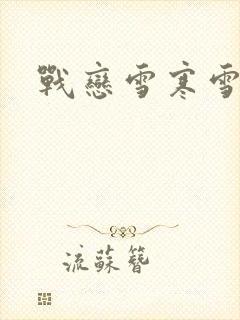 戰戀雪寒雪
流蘇簪